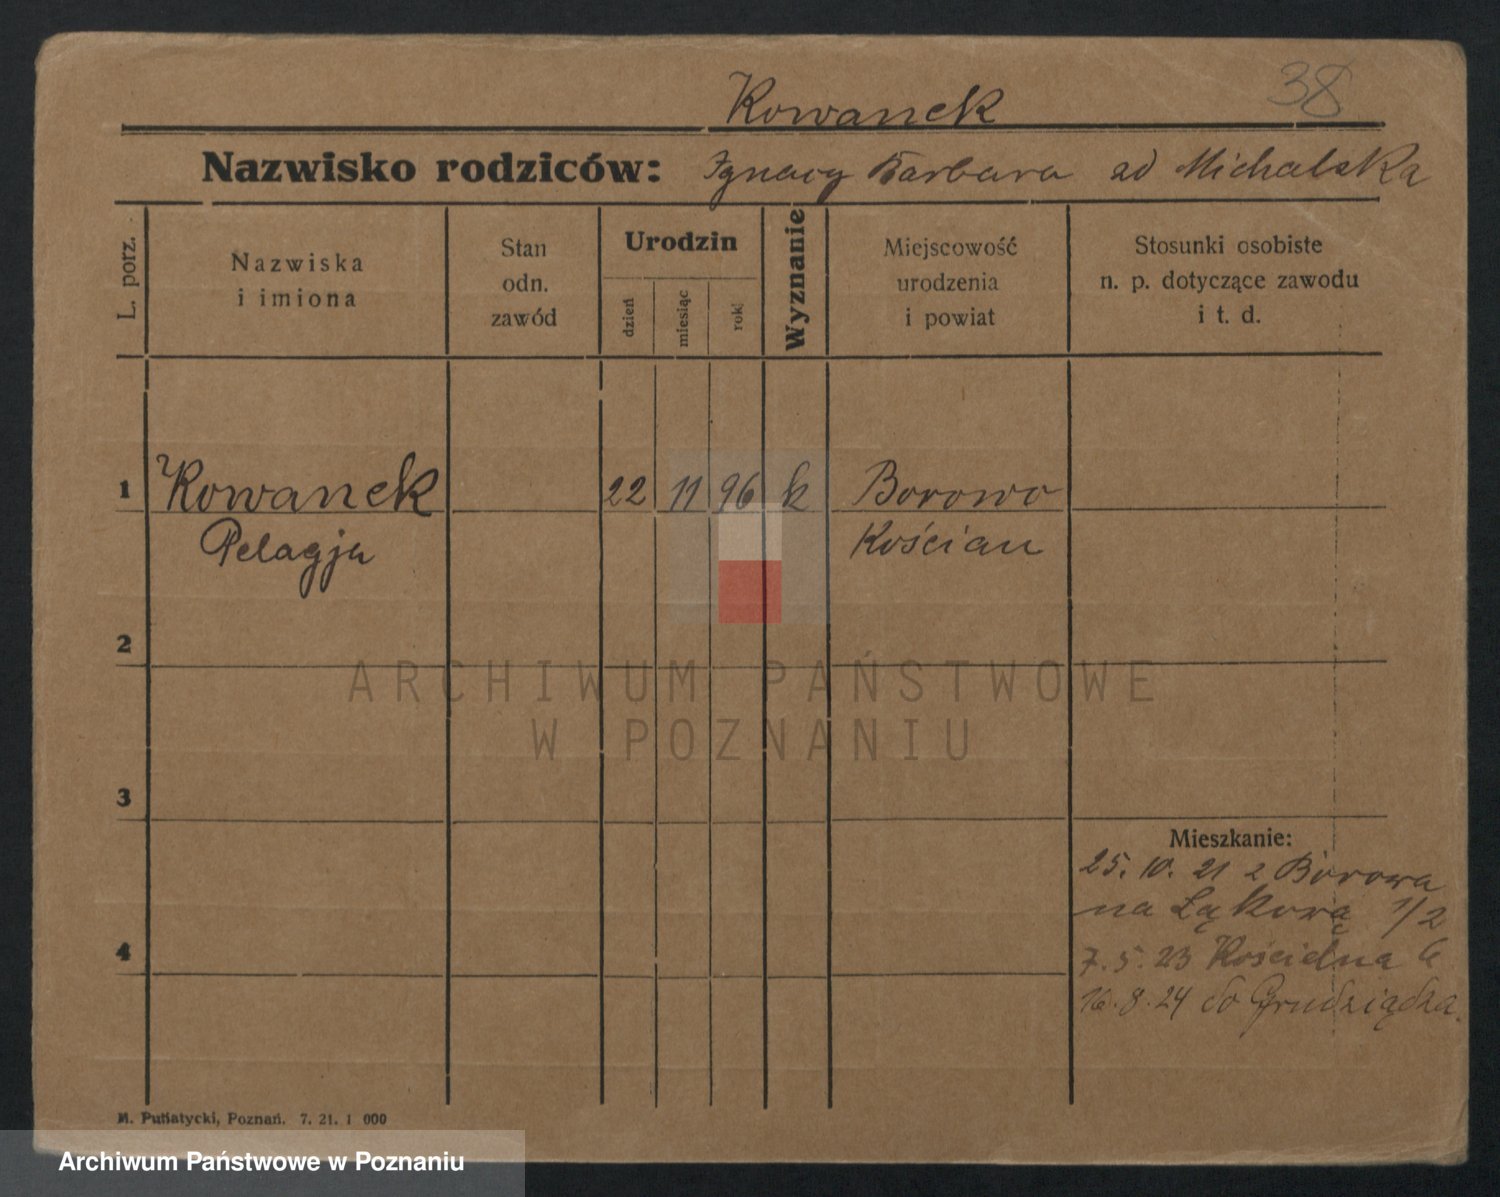 Kowanek 38
Nazwisko rodziców: Ignacy Barbara ad Michalska
L. porz.
Nazwiska
i imiona
Stan
odn.
zawód
Urodzin
dzień
miesiąc
rok
Wyznanie
Miejscowość
urodzenia
i powiat
Stosunki osobiste
n. p. dotyczące zawodu
i t. d.
1 Kowanek 22 11 96 k Borowo
Pelagja Kościan
2
ARCHIWUM PAŃSTWOWE
W POZNANIU
3
Mieszkanie:
25. 10. 21 z Borowa
na Łąkową 1/2
4
7. 5. 23 Kościelna 6
16. 8. 24 do Grudziądza.
M. Putiatycki, Poznań. 7. 21. 1 000
Archiwum Państwowe w Poznaniu